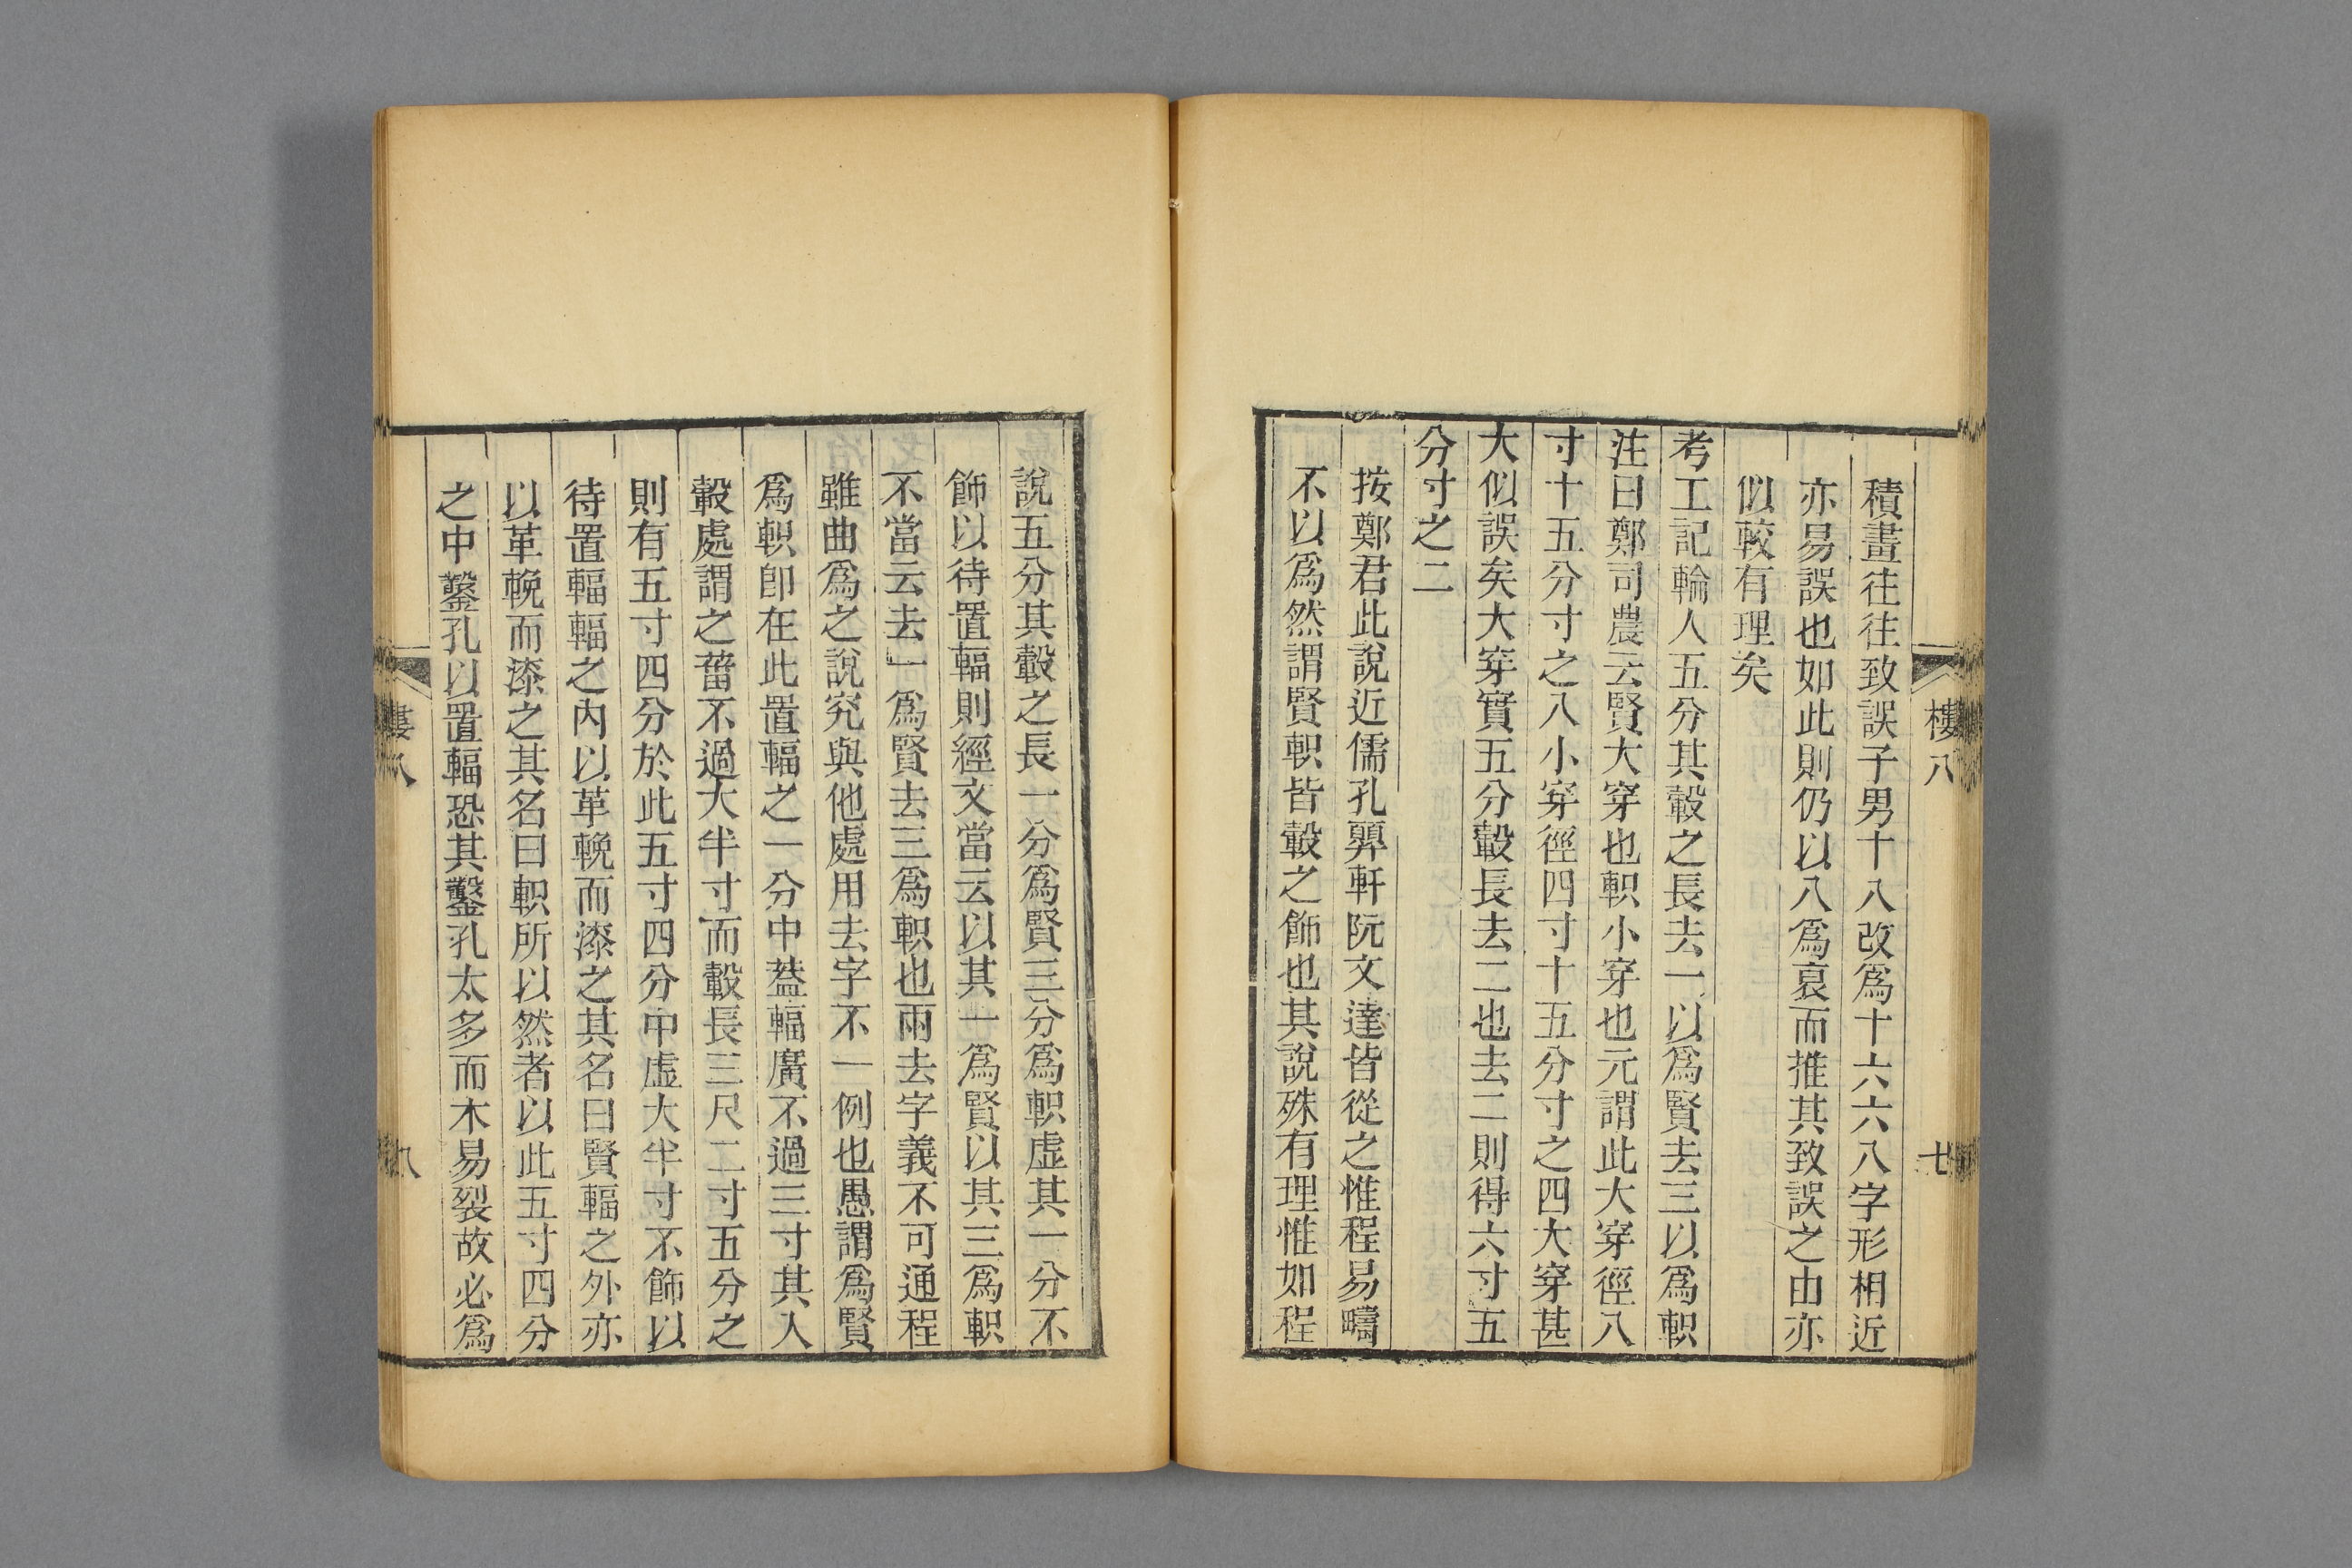 積畫往往致誤子男十八改爲十六六八字形相近
亦易誤也如此則仍以八爲裒而推其致誤之由亦
似較有理矣
考工記輪人五分其轂之長去一以爲賢去三以爲軹
注曰鄭司農云賢大穿也軹小穿也元謂此大穿徑八
寸十五分寸之八小穿徑四寸十五分寸之四大穿甚
大似誤矣大穿實五分轂長去二也去二則得六寸五
分寸之二
按鄭君此說近儒孔顨軒阮文達皆從之惟程易疇
不以爲然謂賢軹皆轂之飾也其說殊有理惟如程
樓八
七
說五分其轂之長一分爲賢三分爲軹虛其一分不
飾以待置輻則經文當云以其一爲賢以其三爲軹
不當云去一爲賢去三爲軹也兩去字義不可通程
雖曲爲之說究與他處用去字不一例也愚謂爲賢
爲軹卽在此置輻之一分中葢輻廣不過三寸其入
轂處謂之蕾不過大半寸而轂長三尺二寸五分之
則有五寸四分於此五寸四分中虛大半寸不飾以
待置輻輻之內以革輓而漆之其名曰賢輻之外亦
以革輓而漆之其名曰軹所以然者以此五寸四分
之中鑿孔以置輻恐其鑿孔太多而木易裂故必爲
樓八
八